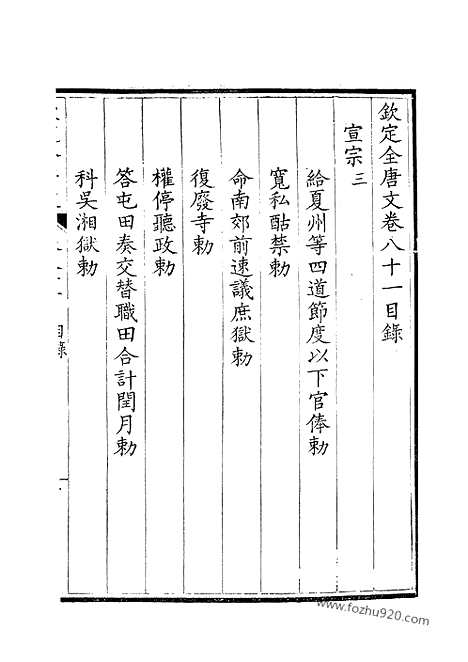 欽定全唐文卷八十一目錄
宣宗三
給夏州等四道節度以下官俸勅
寬私酤禁勅
命南郊前速議庶獄勅
復廢寺勅
權停聽政勅
答屯田奏交替職田合計閏月勅
科吳湘獄勅
目錄
一
www.fozhu920.com